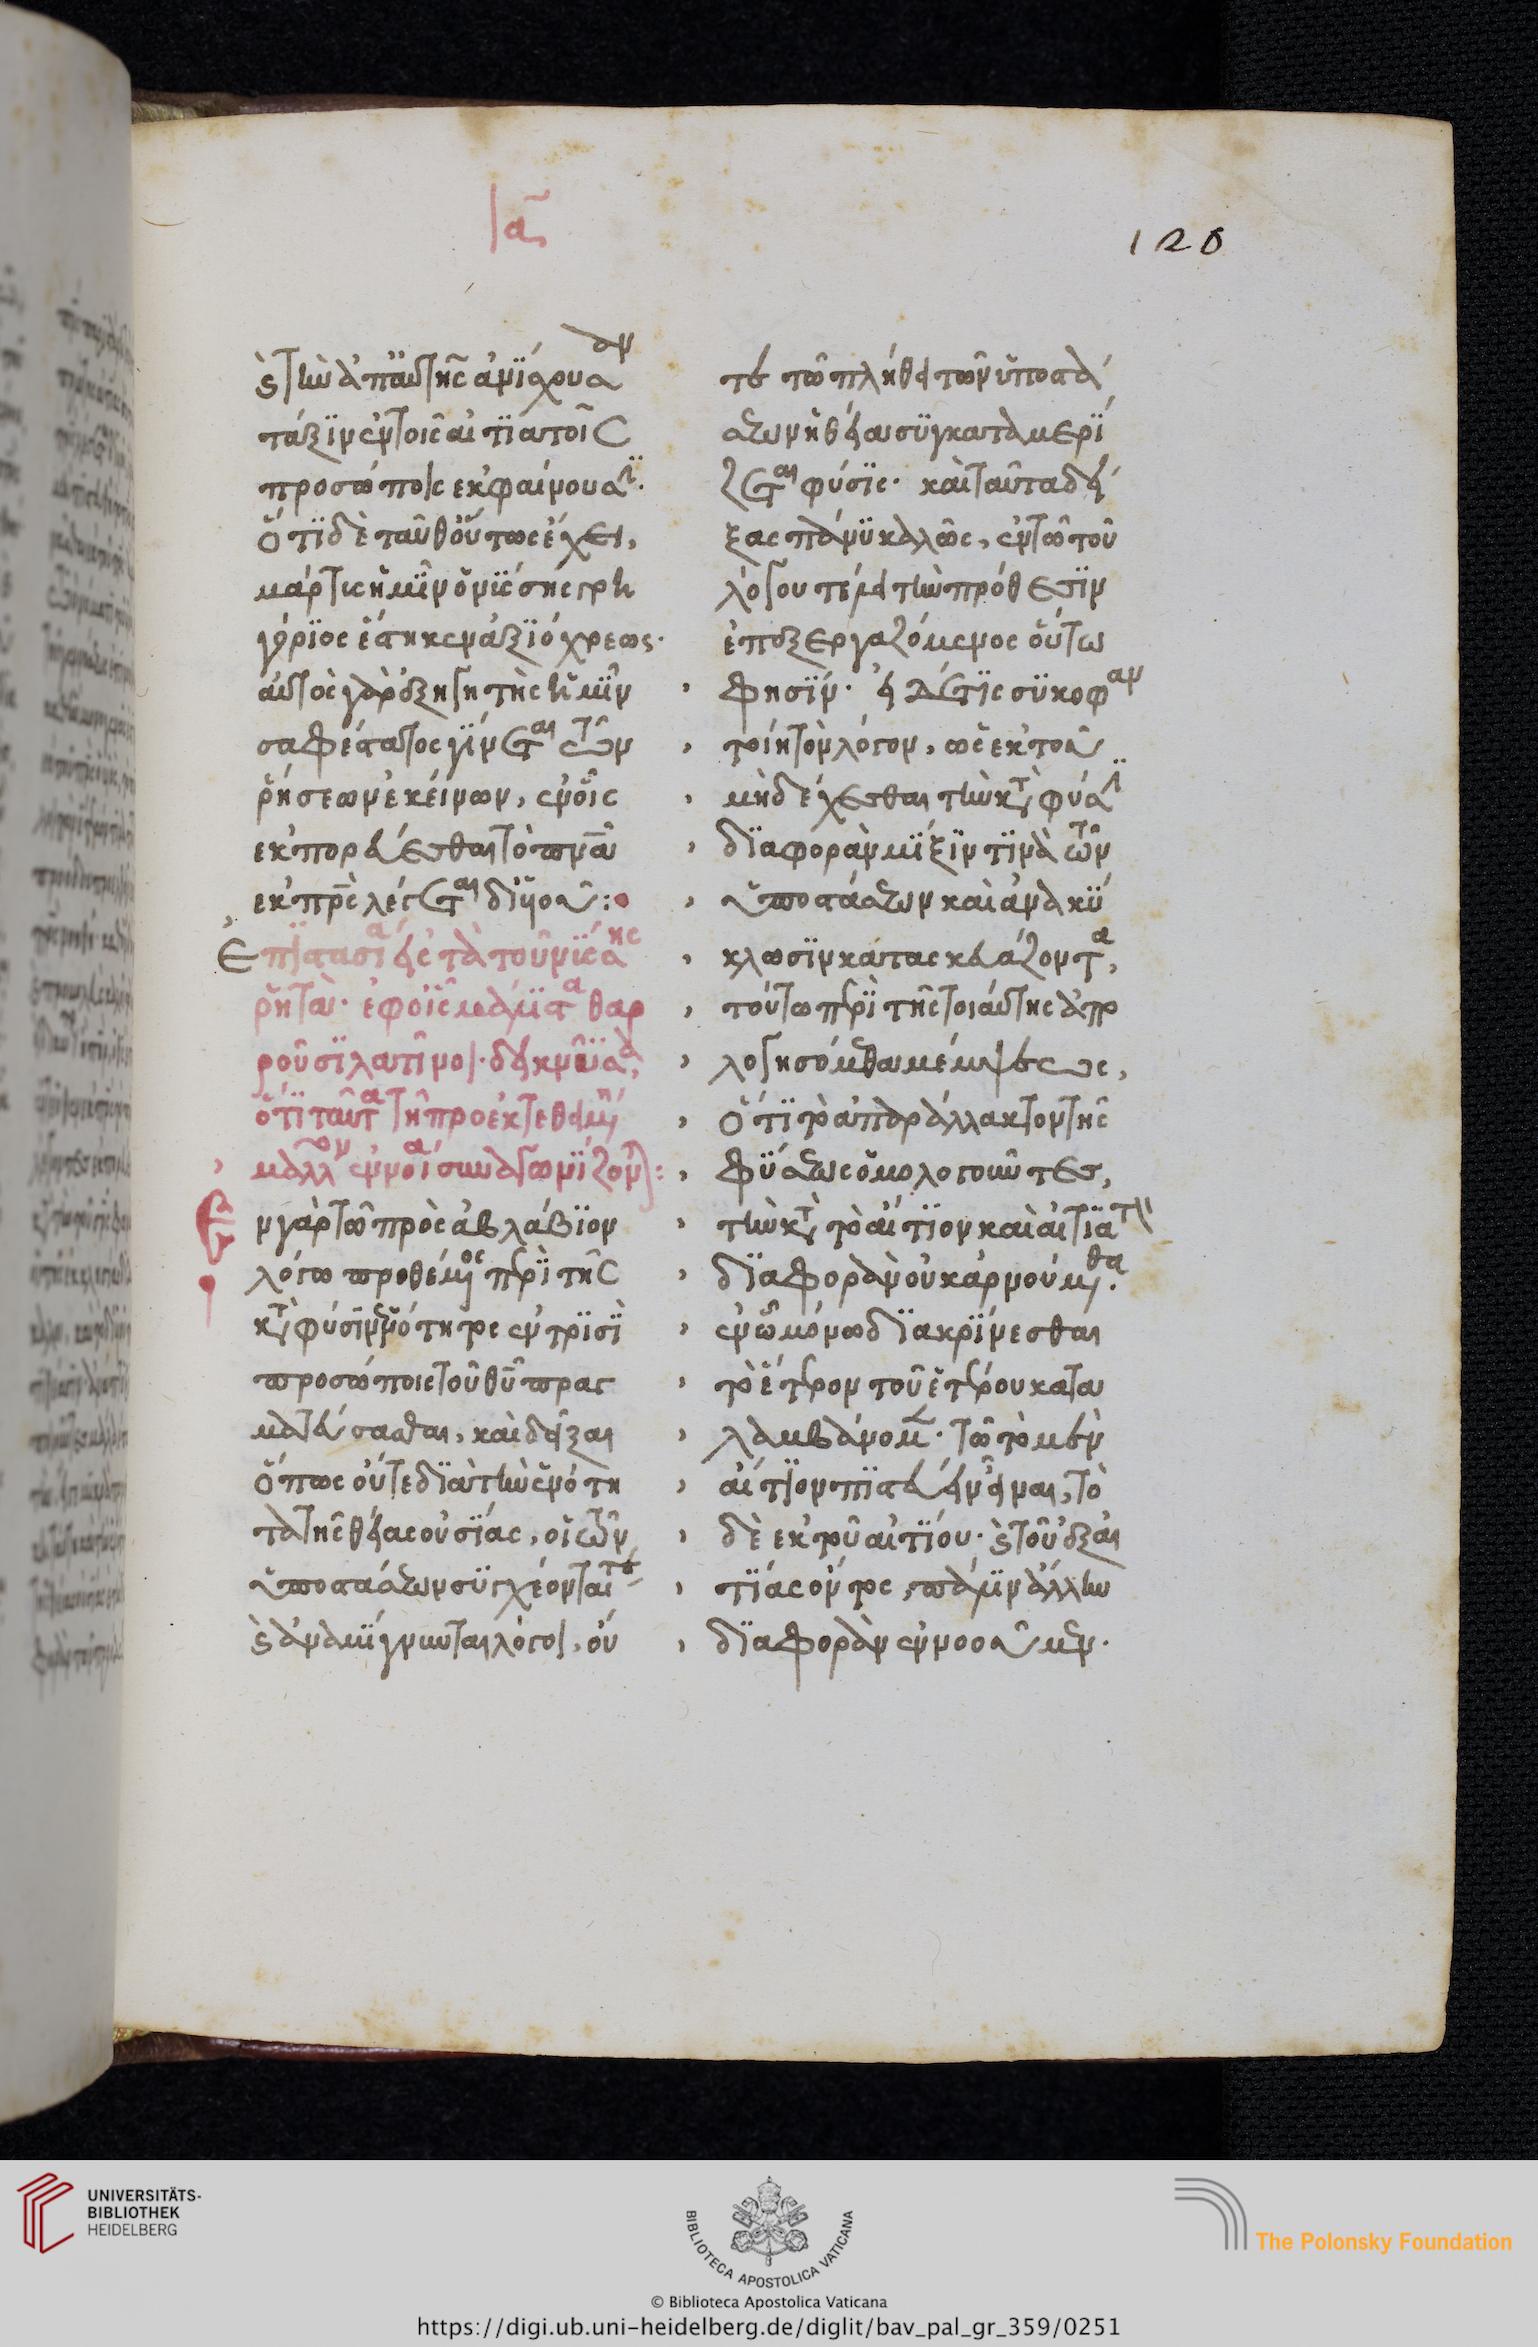 ια
128
καὶ τὴν ἀπ' αὐτῆς ἀνίσχουσαν
τάξιν ἐν τοῖς αἰτιατοῖς
προσώποις ἐκφαίνουσι.
ὅτι δὲ ταῦθ' οὕτως ἔχει,
μάρτις ἡμῖν ὁ νύσσης γρη
γόριος ἕστηκεν ἀξιόχρεως.
αὐτὸς γὰρ ἐξηγητὴς ἡμῖν
σαφέστατος γίνεται τῶν
ῥήσεων ἐκείνων, ἐν οἷς
ἐκπορεύεσθαι τὸ πνα
ἐκ πρς λέγεται δι' υἱοῦ:
Ἐπιστασία εἰς τὰ τοῦ νύσσης
ῥητά. ἐφ' οἷς μάλιστα θαρ
ροῦσι λατῖνοι. δεικνῦσα,
ὅτι ταῦτα τῇ προεκτεθείσῃ
μᾶλλον ἐννοίᾳ συναγωνίζοντ:
Ἐν γὰρ τῶ πρὸς ἀβλάβιον
λόγω προθέμενος περὶ τῆς
κατὰ φύσιν ἑνότητος ἐν τρισὶ
προσώποις τοῦ θυ πραγ
ματεύσασθαι, καὶ δεῖξαι
ὅπως οὔτε διὰ τὴν ἑνότη
τα τῆς θείας οὐσίας, οἱ τῶν
ὑποστάσεων συγχέονταί τε
καὶ ἀναμίγνυνται λόγοι, οὔ
τε τῶ πλήθει τῶν ὑποστά
σεων ἡ θεία συγκαταμερί
ζεται φύσις. καὶ ταῦτα δεί
ξας πάνυ καλῶς, ἐν τῶ τοῦ
λόγου τέλει τὴν πρόθεσιν
ἐπεξεργαζόμενος οὕτω
φησίν. εἰ δέ τις συκοφαν
τοίη τὸν λόγον, ὡς ἐκ τοῦ
μὴ δέχεσθαι τὴν κατὰ φύσιν
διαφορὰν μίξιν τινὰ τῶν
ὑποστάσεων καὶ ἀνακύ
κλωσιν κατασκευάζοντα,
τοῦτο περὶ τῆς τοιαύτης ἀπο
λογησόμεθα μέμψεως,
ὅτι τὸ ἀπαράλλακτον τῆς
φύσεως ὁμολογοῦντες,
τὴν κατὰ τὸ αἴτιον καὶ αἰτιατὸν
διαφορὰν οὐκ ἀρνούμεθα.
ἐν ὧ μόνω διακρίνεσθαι
τὸ ἕτερον τοῦ ἑτέρου κατα
λαμβάνομεν. τῶ τὸ μὲν
αἴτιον πιστεύειν εἶναι, τὸ
δὲ ἐκ τοῦ αἰτίου. καὶ τοῦ ἐξ αἰ
τίας ὄντος, πάλιν ἄλλην
διαφορὰν ἐννοοῦμεν.
UNIVERSITÄTS-
BIBLIOTHEK
HEIDELBERG
BIBLIOTECA APOSTOLICA VATICANA
The Polonsky Foundation
© Biblioteca Apostolica Vaticana
https://digi.ub.uni-heidelberg.de/diglit/bav_pal_gr_359/0251